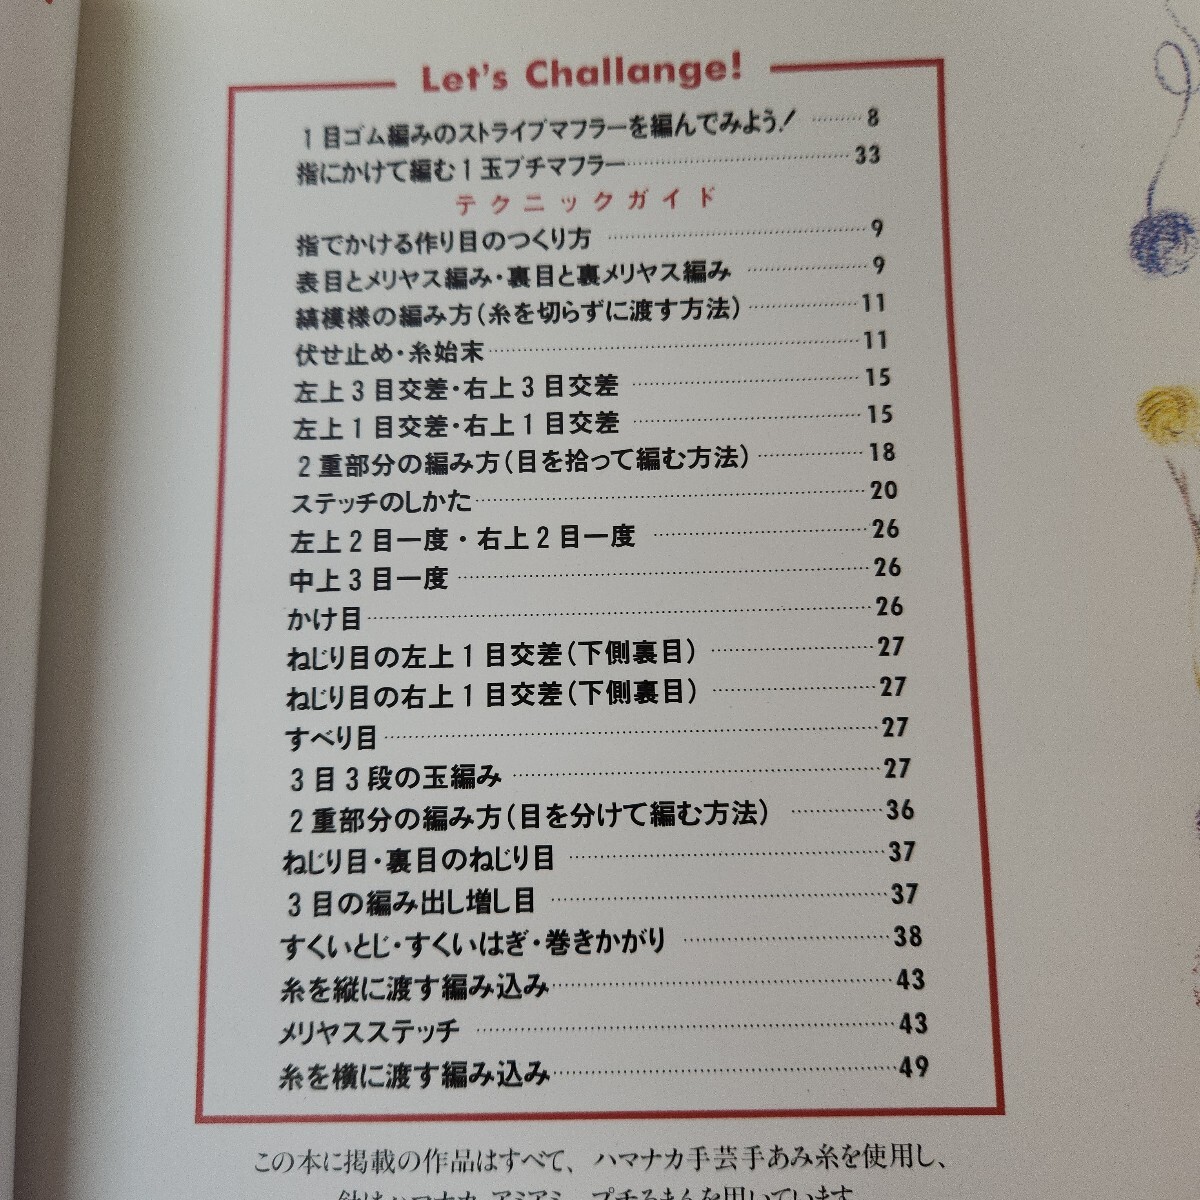 Let's Challange!
1目ゴム編みのストライプマフラーを編んでみよう! ……… 8
指にかけて編む1玉プチマフラー……………… 33
テクニックガイド
指でかける作り目のつくり方 ……………… 9
表目とメリヤス編み・裏目と裏メリヤス編み ……… 9
縞模様の編み方(糸を切らずに渡す方法) ……… 11
伏せ止め・糸始末……………… 11
左上3目交差・右上3目交差 ……………… 15
左上1目交差・右上1目交差 ……………… 15
2重部分の編み方(目を拾って編む方法) ……… 18
ステッチのしかた……………… 20
左上2目一度・右上2目一度 ……………… 26
中上3目一度 ……………… 26
かけ目……………… 26
ねじり目の左上1目交差(下側裏目) ……… 27
ねじり目の右上1目交差(下側裏目) ……… 27
すべり目……………… 27
3目3段の玉編み ……………… 27
2重部分の編み方(目を分けて編む方法) ……… 36
ねじり目・裏目のねじり目 ……………… 37
3目の編み出し増し目 ……………… 37
すくいとじ・すくいはぎ・巻きかがり ……… 38
糸を縦に渡す編み込み……………… 43
メリヤスステッチ ……………… 43
糸を横に渡す編み込み……………… 49
この本に掲載の作品はすべて、ハマナカ手芸手あみ糸を使用し、